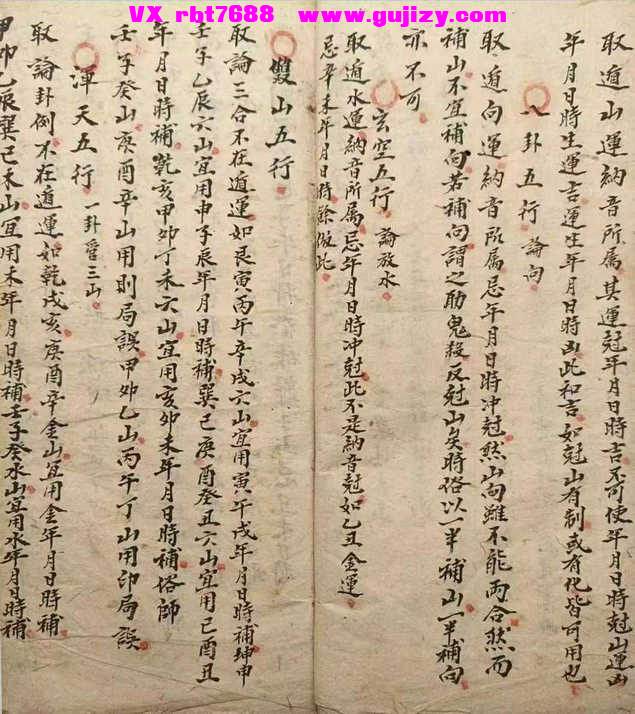 VX rbt7688 www.gujizy.com
取遁山運納音所属其運尅年月日時吉不可使年月日時尅山運凶
年月日時生運吉運生年月日時凶此和吉如尅山有制或有化皆可用也
八卦五行 論向
取遁向運納音所属忌年月日時冲尅然山向雖不能両合然而
補山不宜補向若補向謂之助鬼殺反尅山矣時俗以一半補山一半補向
亦不可
玄空五行 論放水
取遁水運納音所属忌年月日時冲尅此不是納音尅如乙丑金運
忌辛未年月日時餘倣此
雙山五行
取論三合不在遁運如艮寅丙午辛戌六山宜用寅午戌年月日時補坤申
壬子乙辰六山宜用申子辰年月日時補巽巳庚酉癸丑六山宜用巳酉丑
年月日時補乾亥甲卯丁未六山宜用亥卯未年月日時補塔師
壬子癸山庚酉辛山用則局誤甲卯乙山丙午丁山用印局誤
渾天五行 一卦管三山
取論卦例不在遁運如乾戌亥庚酉辛金山宜用金年月日時補
甲卯乙辰巽巳木山宜用木年月日時補壬子癸水山宜用水年月日時補